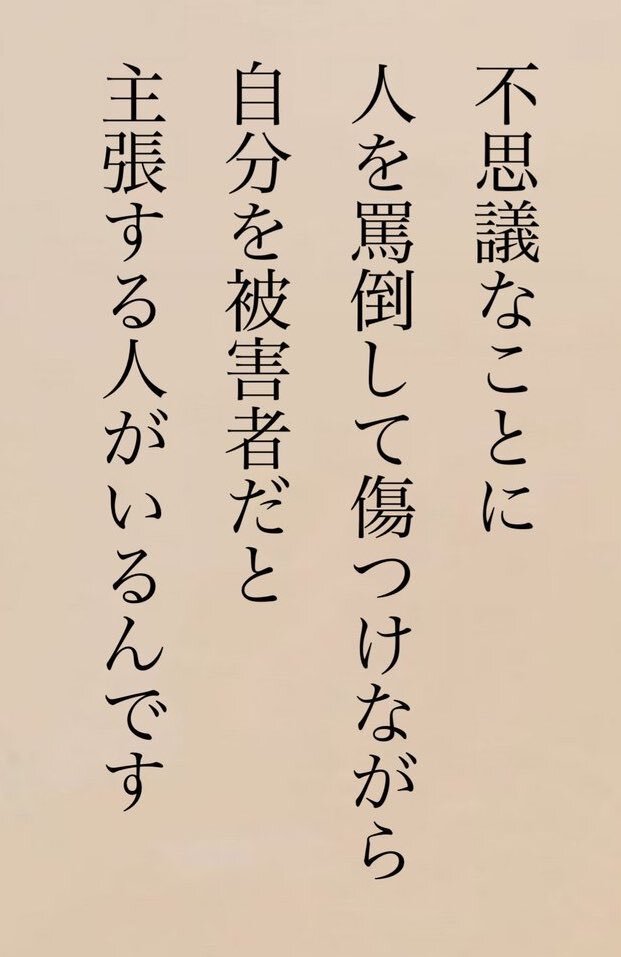 不思議なことに
人を罵倒して傷つけながら
自分を被害者だと
主張する人がいるんです